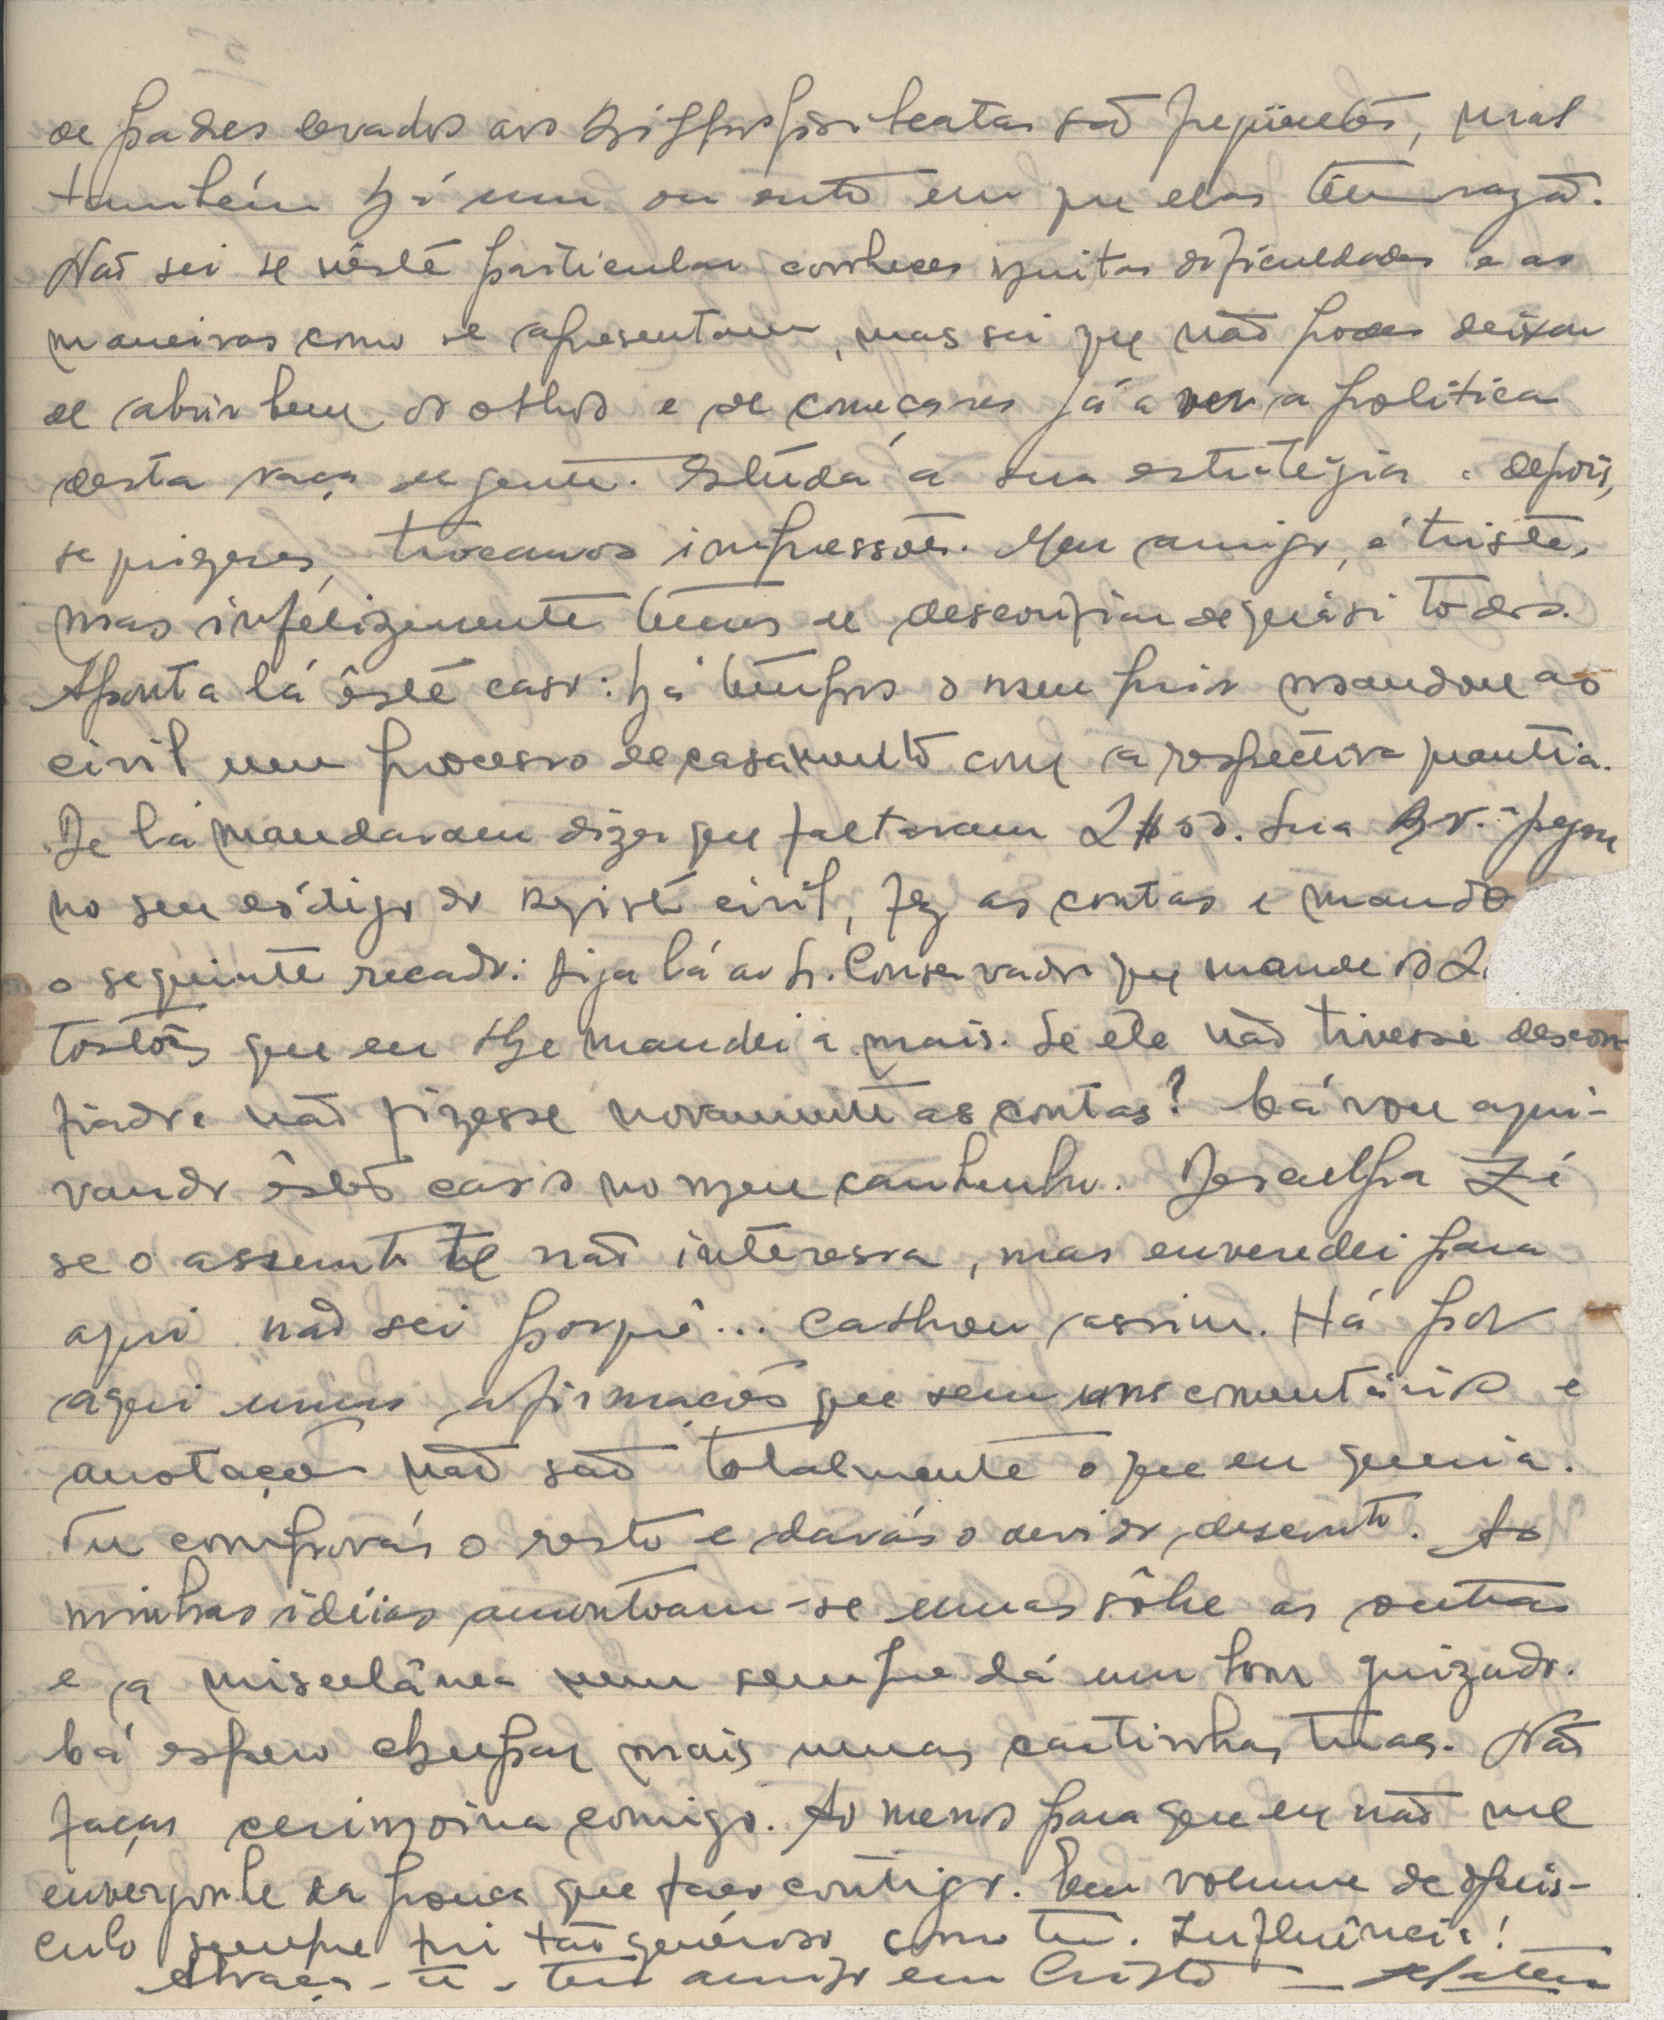 de padres levados aos Bispos por beatas são frequentes, mas
também há um ou outro em que elas têm razão.
Não sei se nêste particular conheces muitas dificuldades e as
maneiras como se apresentam, mas sei que não podes deixar
de abrir bem os olhos e de começares já a ver a política
desta raça de gente. Estuda a sua estratégia e depois,
se quizeres, trocamos impressões. Meu amigo, é triste,
mas infelizmente temos de desconfiar de quási todos.
Aponta lá êste caso: há tempos o meu prior mandou ao
civil um processo de casamento com a respectiva quantia.
De lá mandaram dizer que faltavam 2$50. Sua Rv.ª pegou
no seu código do registo civil, fez as contas e mando
o seguinte recado: diga lá ao Sr. Conservador que mande os 2
tostões que eu lhe mandei a mais. Se ele não tivesse descon-
fiado e não fizesse novamente as contas? Cá vou arqui-
vando êstes casos no meu canhenho. Desculpa Zé
se o assunto te não interessa, mas enveredei para
aqui não sei porquê... Calhou assim. Há por
aqui umas afirmações que sem uns comentários e
anotações não são totalmente o que eu queria.
Tu comprovas o resto e davas o devido desconto. As
minhas idéias amontoam-se umas sôbre as outras
e a miscelânea nem sempre dá um bom guizado.
Cá espero chupar mais umas cartinhas tuas. Não
faças cerimónia comigo. Ao menos para que eu não me
envergonhe da pouca que faço contigo. Em volume de opús-
culo sempre fui tão generoso como tu. Influência!
Abraça-te o teu amigo em Cristo —